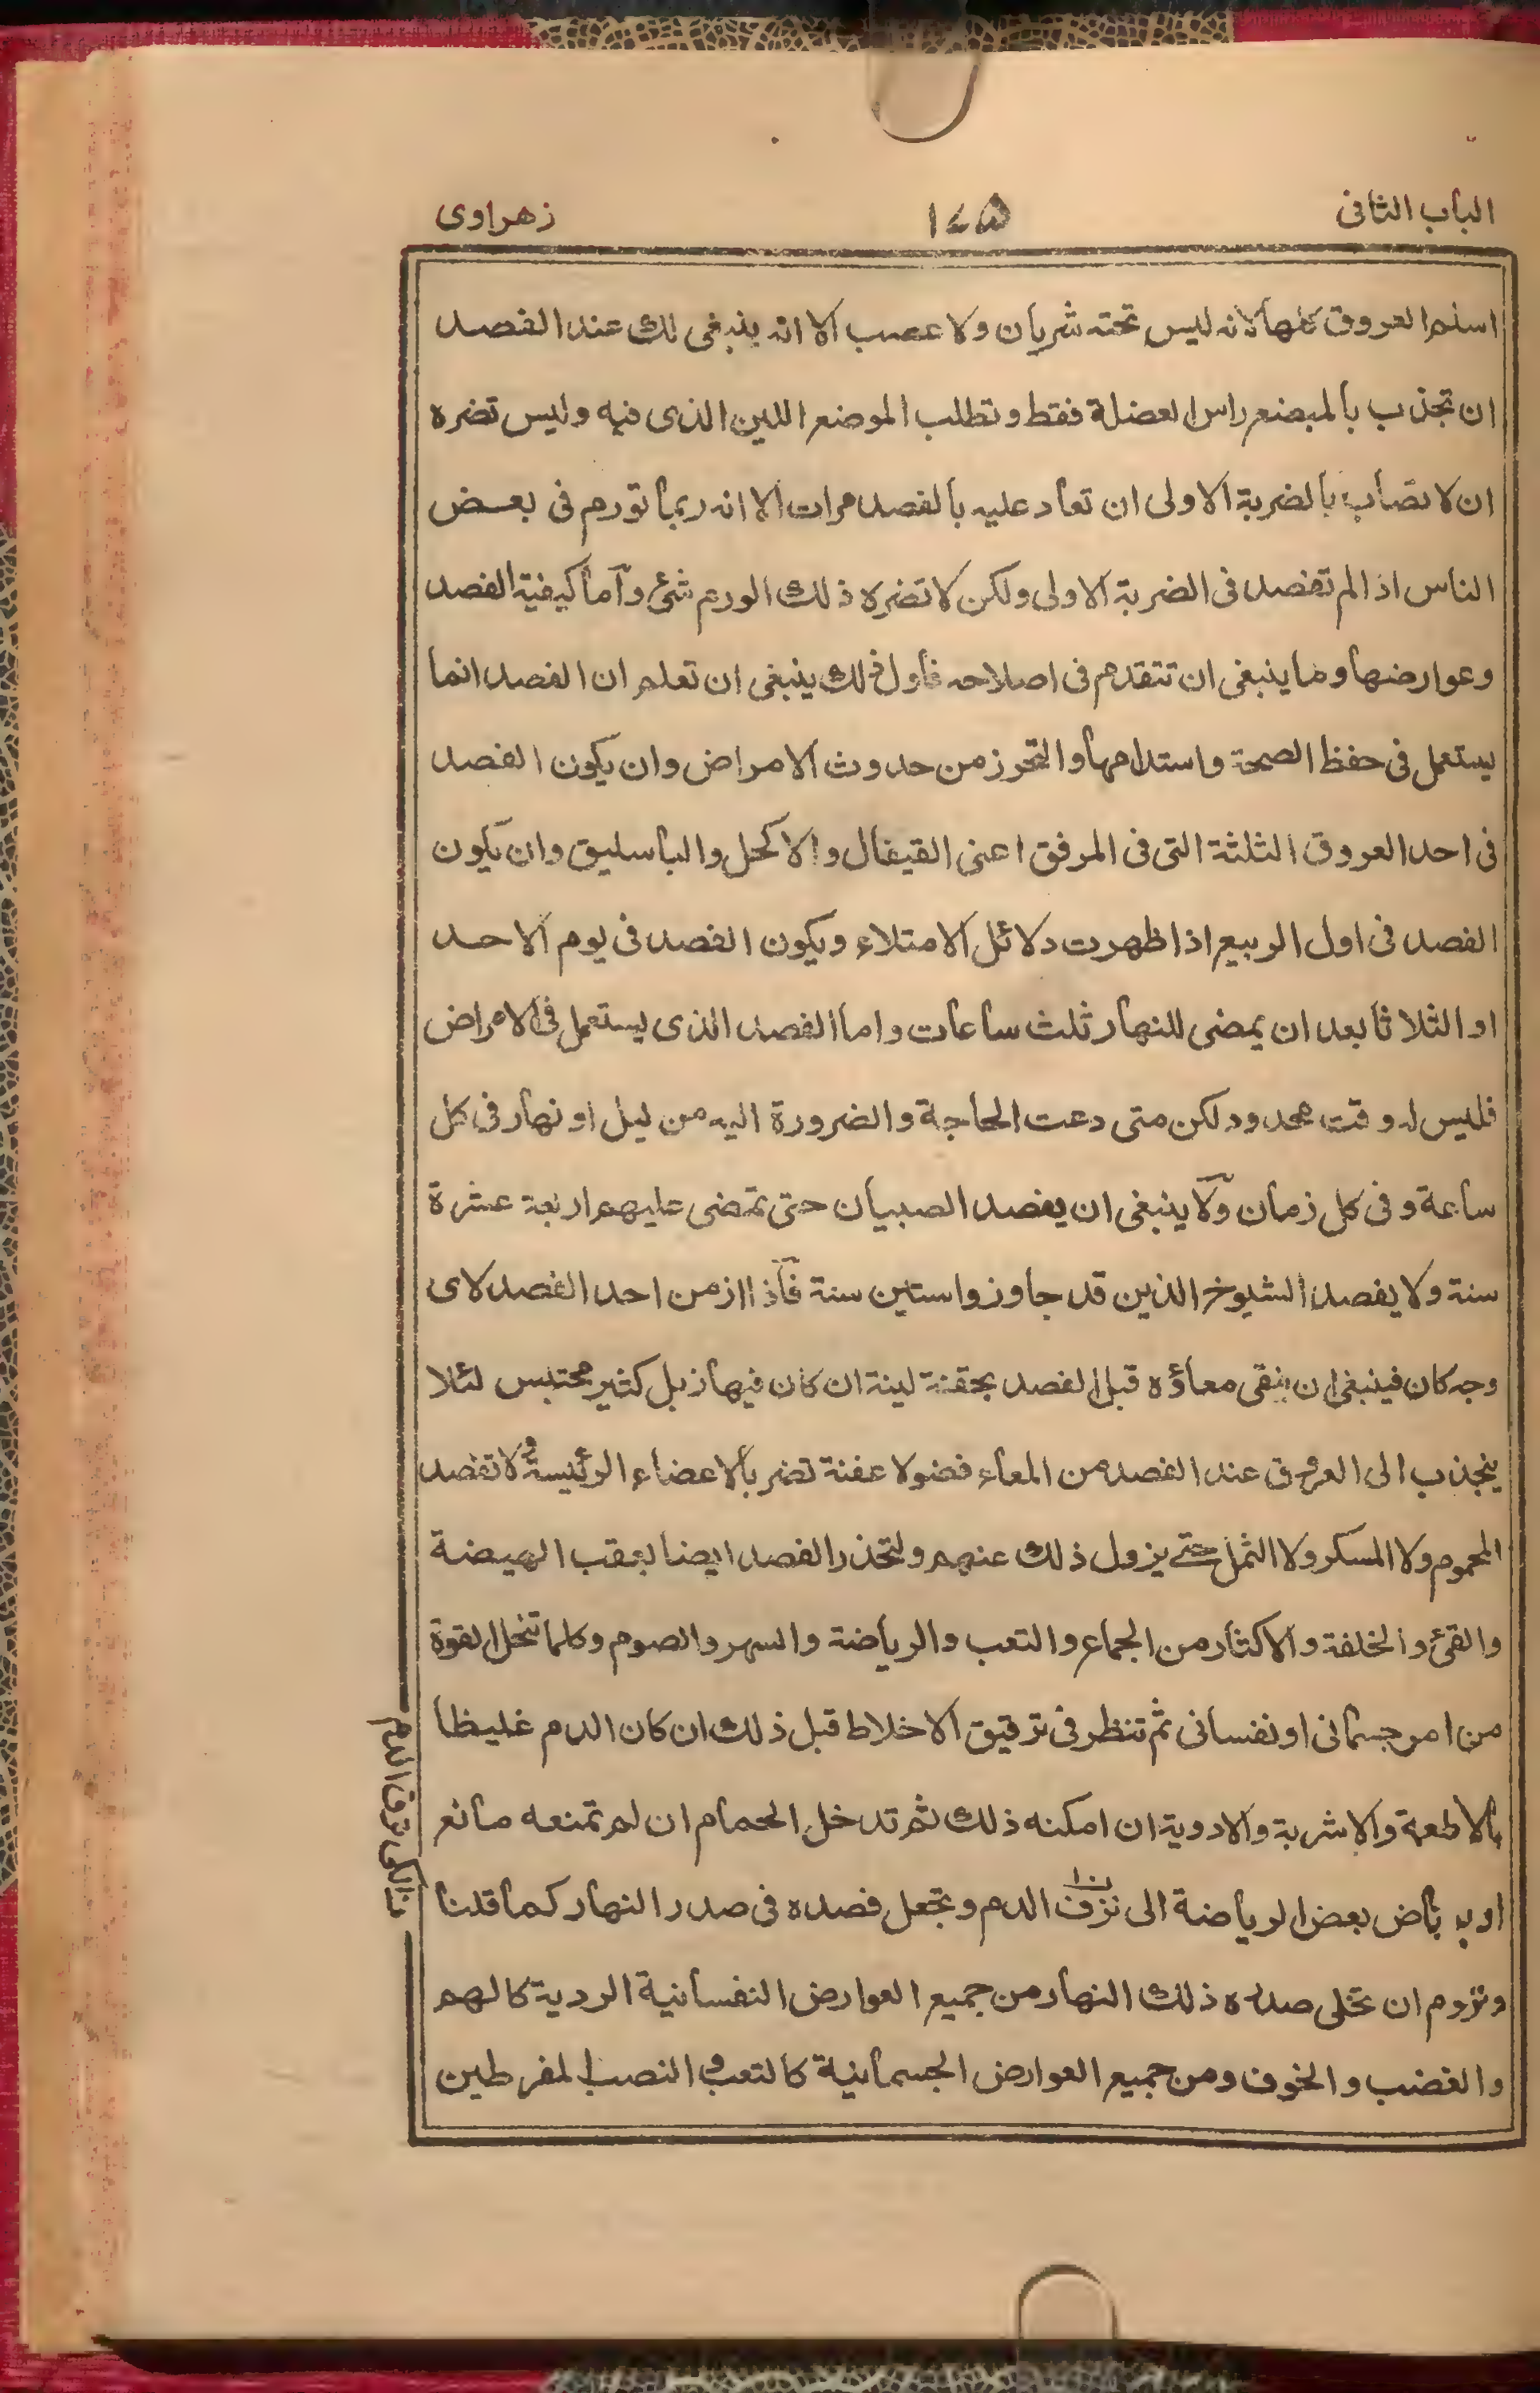 الباب الثانى ١٤٥ زهراوى
اسلم العروق كلها لانه ليس تحته شريان ولا عصب الا انه ينبغى لك عند الفصد
ان تجذب بالمبضع راس العضلة فقط وتطلب الموضع اللين الذى فيه وليس تضره
ان لا تصاب بالضربة الاولى ان تعاد عليه بالفصد مرات الا انه ربما تورم فى بعض
الناس اذا لم تفصد فى الضربة الاولى ولكن لا تضره ذلك الورم شئ وآما كيفية الفصد
وعوارضها وما ينبغى ان تتقدم فى اصلاحه فاول ذلك ينبغى ان تعلم ان الفصد انما
يستعمل فى حفظ الصحة واستدامها والتحرز من حدوث الامراض وان يكون الفصد
فى احد العروق الثلثة التى فى المرفق اعنى القيفال والاكحل والباسليق وان يكون
الفصد فى اول الربيع اذا ظهرت دلائل الامتلاء ويكون الفصد فى يوم الاحد
او الثلاثا بعد ان يمضى للنهار ثلث ساعات واما الفصد الذى يستعمل فى الامراض
فليس له وقت محدود لكن متى دعت الحاجة والضرورة اليه من ليل او نهار فى كل
ساعة وفى كل زمان ولآ ينبغى ان يفصد الصبيان حتى تمضى عليهم اربعة عشرة
سنة ولا يفصد الشيوخ الذين قد جاوزوا ستين سنة فآذا ازمن احد الفصد لاى
وجه كان فينبغى ان ينقى معاؤه قبل الفصد بحقنة لينة ان كان فيها زبل كثير محتبس لئلا
ينجذب الى العروق عند الفصد من المعاء فضولا عفنة تضر بالاعضاء الرئيسة ولا تفصد
المحموم ولا المسكر ولا الثمل حتے يزول ذلك عنهم ولتحذر الفصد ايضا بعقب الهيضة
والقئ والخلفة والاكثار من الجماع والتعب والرياضة والسهر والصوم وكلما تنحل القوة
من امر جسمانى او نفسانى ثم تنظر فى ترقيق الاخلاط قبل ذلك ان كان الدم غليظا
بالاطعمة والاشربة والادوية ان امكنه ذلك ثم تدخل الحمام ان لم تمنعه مانع
او يرتاض بعض الرياضة الى نزف الدم وتجعل فصده فى صدر النهار كما قلنا
وتروم ان تخلى صدره ذلك النهار من جميع العوارض النفسانية الردية كالهم
والغضب والخوف ومن جميع العوارض الجسمانية كالتعب والنصب المفرطين